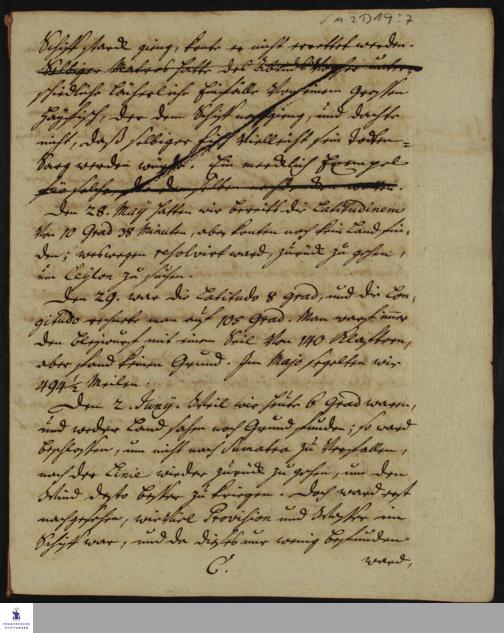 2 D 19 : 7
Schiff starck gieng, konte er nicht errettet werden.
Selbiger Matros hatte des Abends vorher unter-
schiedliche von einem Grossen
Hayfisch, der dem Schiff nachgieng, und dachte
nicht, daß selbiger sich vielleicht sein Todten-
Sarg werden würde. Ein mercklich Exempel
Den 28. May hatten wir bereits die Latitudinem
von 10 Grad 38 Minuten, aber konten noch kein Land fin-
den; weswegen resolvirt ward, zurück zu gehen,
um Ceylon zu suchen.
Den 29. war die Latitudo 8 grad, und die Lon-
gitudo rechnete man auf 105 Grad. Man warf immer
den Bleywurf mit einem Seil von 140 Klaftern,
aber fand keinen Grund. Im Majo segelten wir
494 1/2 Meilen.
Den 2. Junij. Weil wir heute 6 Grad waren,
und weder Land sahen noch Grund funden; so ward
beschlossen, um nicht nach Sumatra zu verfallen,
nach der Linie wieder zurück zu gehen, um den
Wind desto besser zu kriegen. Doch ward erst
nachgesehen, wieviel Provision und Wasser im
Schiff war, und da dieses nur wenig befunden
C. ward,
FRANCKESCHE
STIFTUNGEN